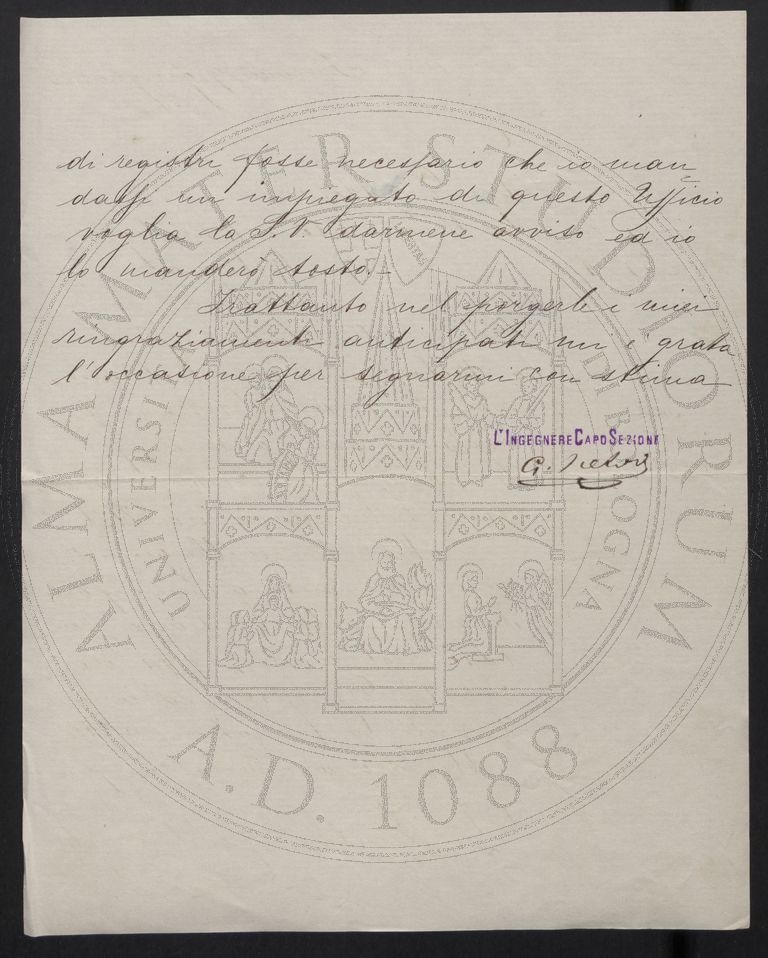 di registri fosse necessario che io man=
dassi un impiegato di questo Ufficio
voglia la S.V. darmene avviso ed io
lo manderò tosto.-
Frattanto nel porgerle i miei
ringraziamenti anticipati mi è grata
l'occasione per segnarmi con stima
L'INGEGNERE CAPO SEZIONE
G.
ALMA MATER STUDIORUM
UNIVERSITÀ DI BOLOGNA
A.D. 1088